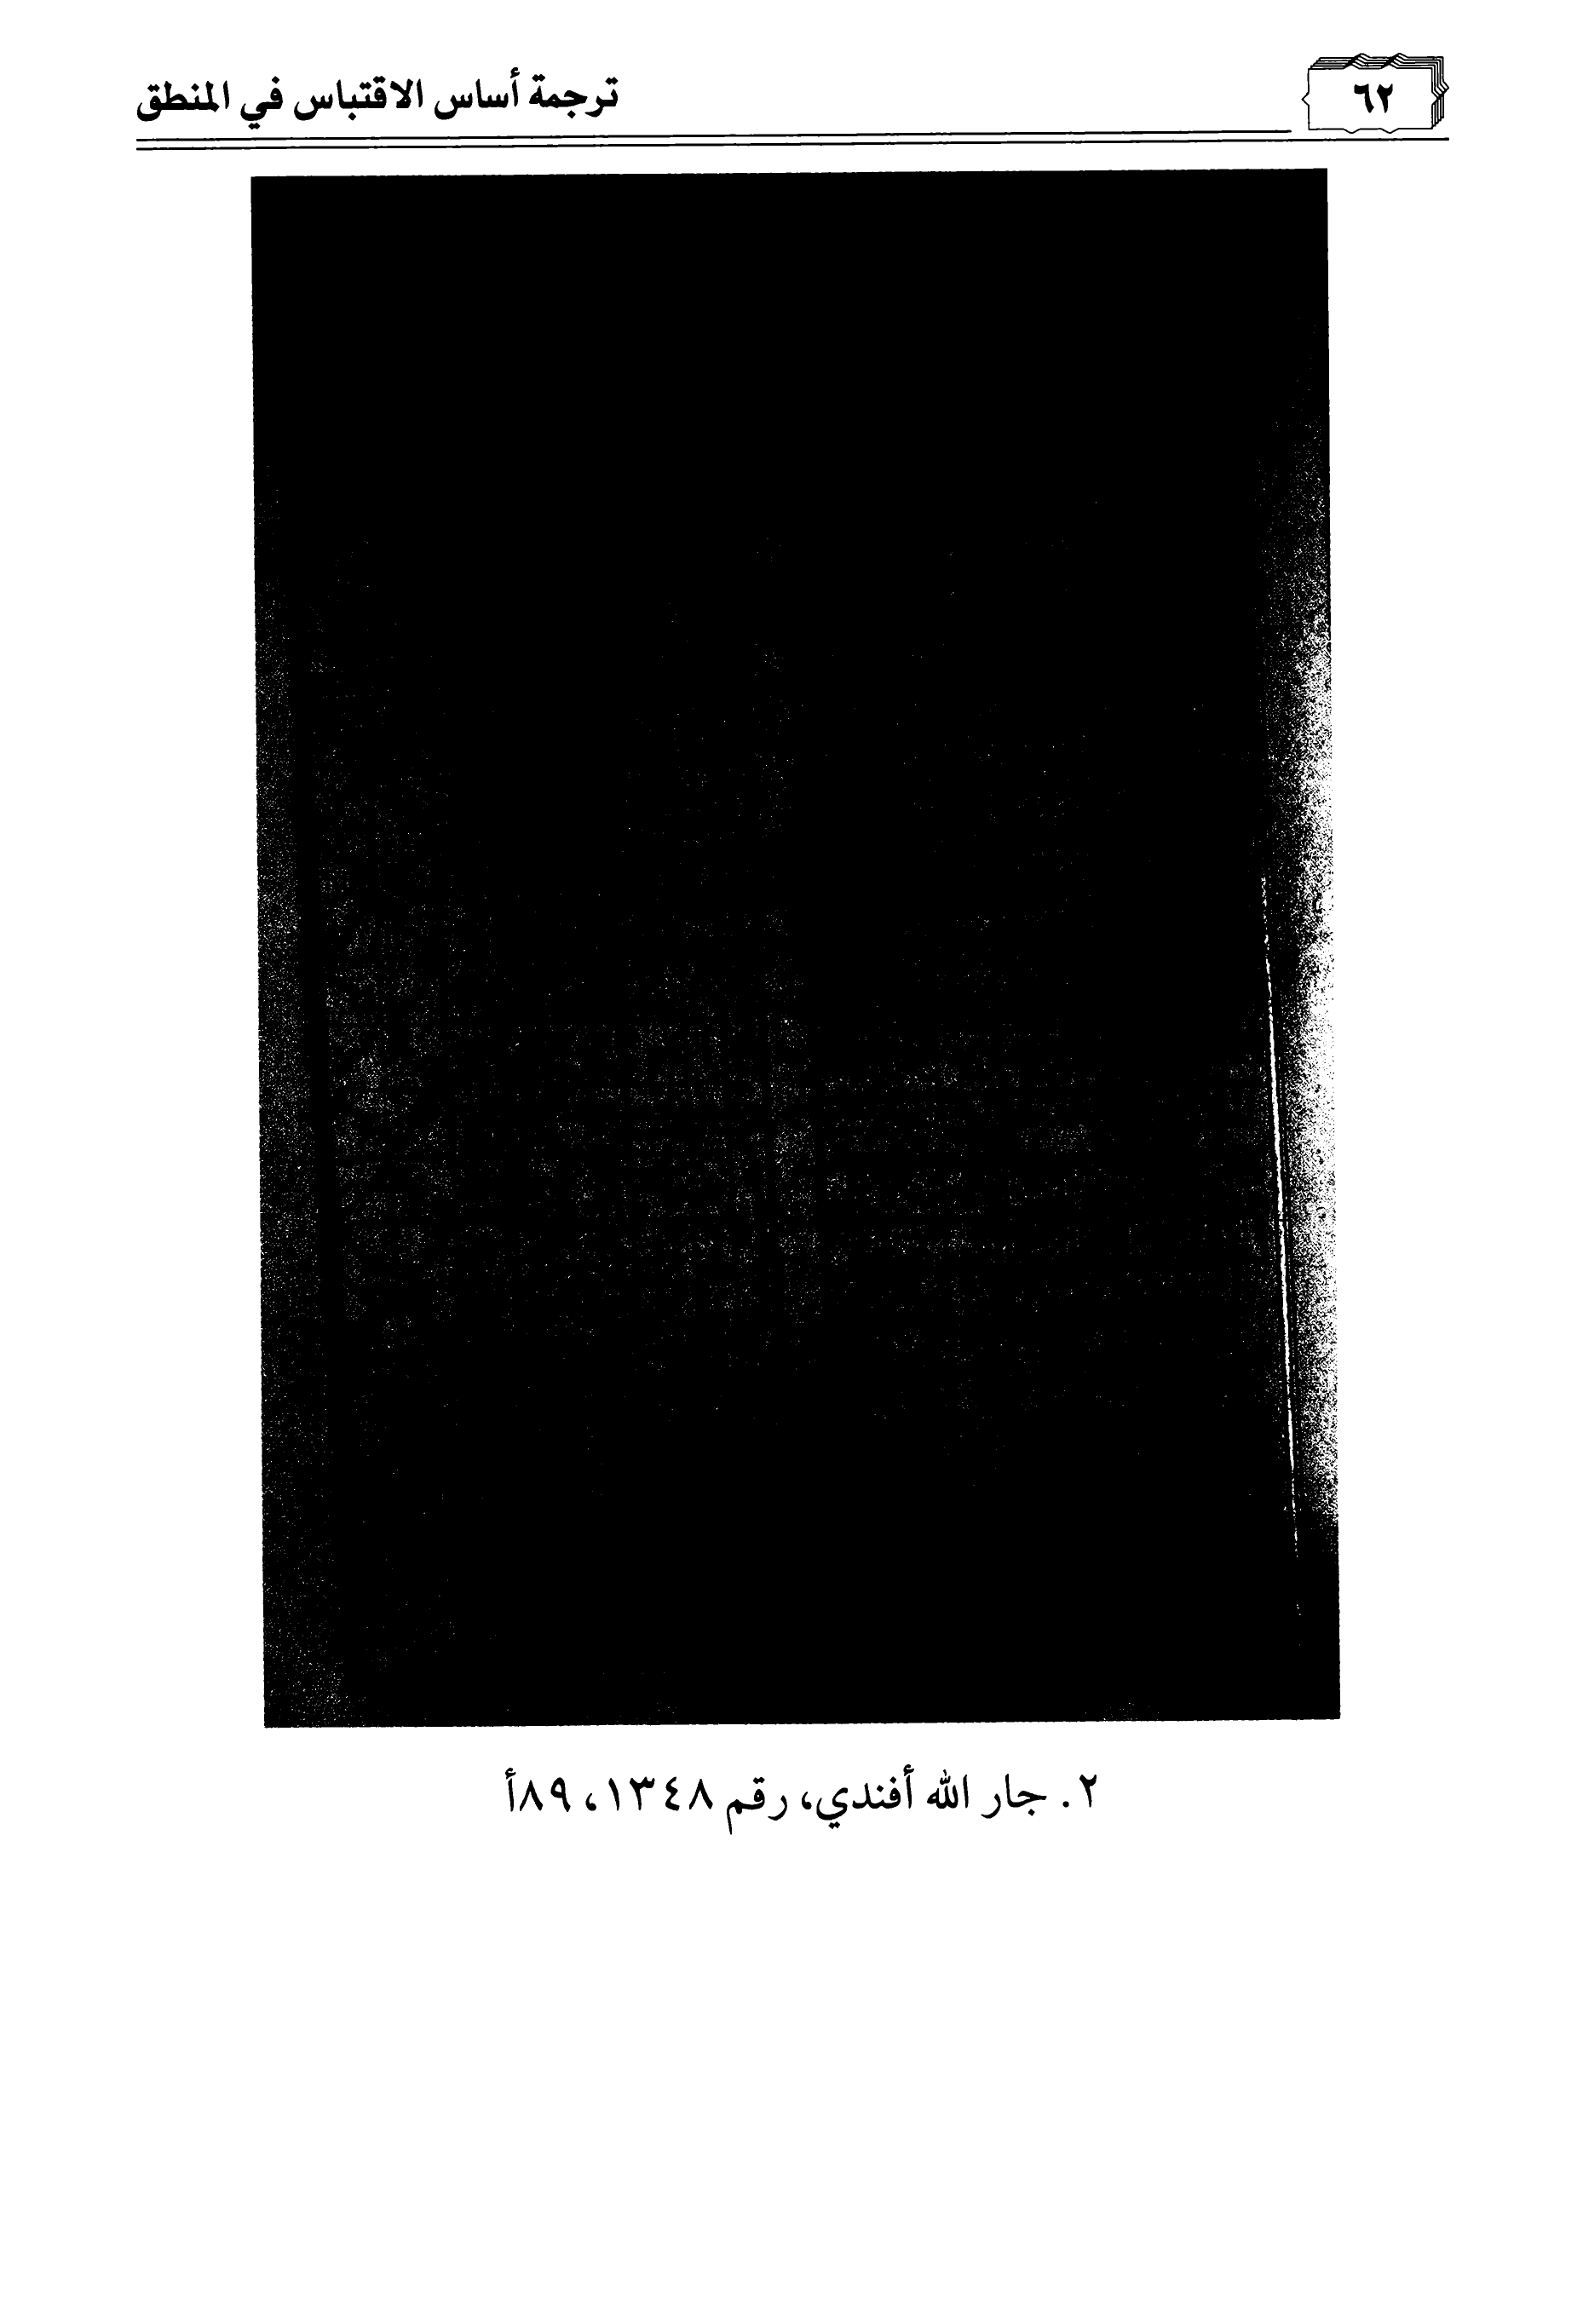 ٦٢
ترجمة أساس الاقتباس في المنطق
٢. جار الله أفندي، رقم ١٣٤٨، ٨٩أ